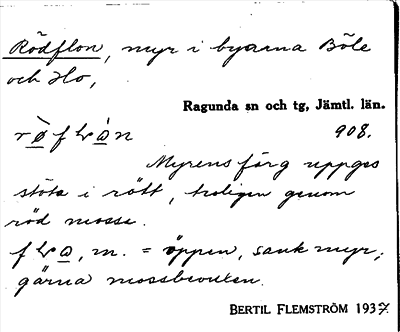 Rödflon, myr i byarna Böle
och Ho,
Ragunda sn och tg, Jämtl. län.
908.
Myrens färg uppges
stöta i rött, troligen genom
röd mossa.
m. = öppen, sank myr;
gärna mossbevuxen.
BERTIL FLEMSTRÖM 1937.